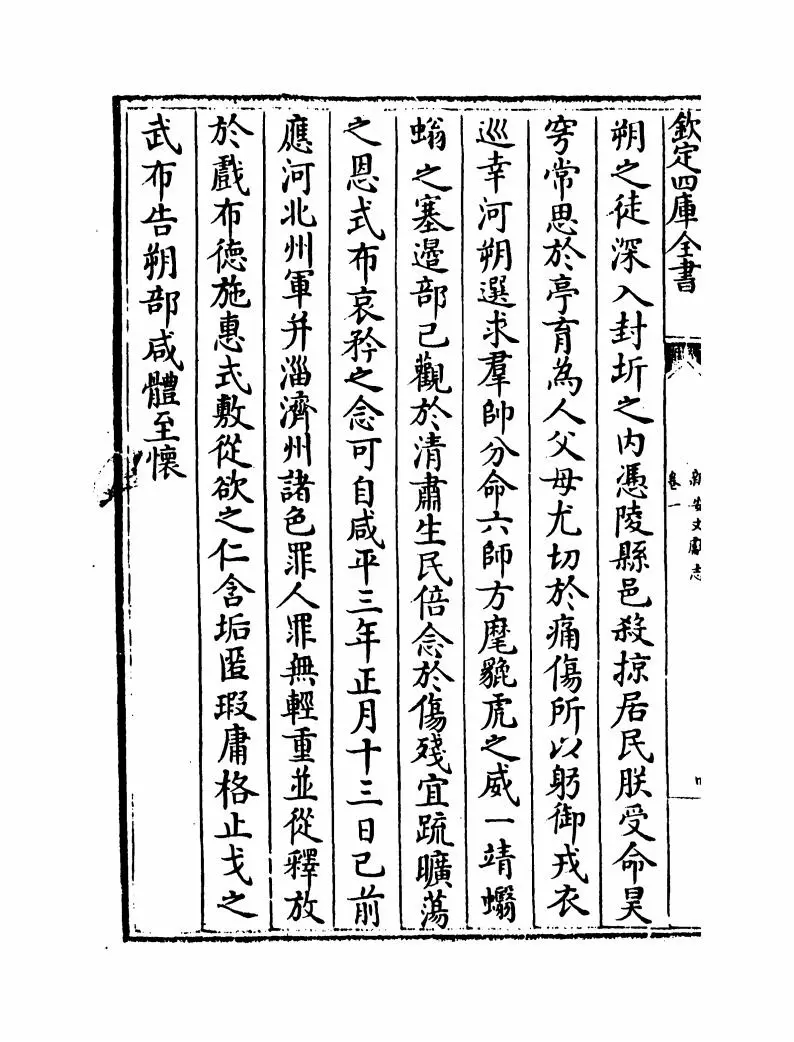 欽定四庫全書
新安文獻志
卷一
朔之徒深入封圻之内憑陵縣邑殺掠居民朕受命昊
穹常思於亭育為人父母尤切於痛傷所以躬御戎衣
巡幸河朔選求羣帥分命六師方麾貔虎之威一靖蠮
螉之塞邉部已觀於清肅生民倍念於傷殘宜䟽曠蕩
之恩式布哀矜之念可自咸平三年正月十三日已前
應河北州軍并淄濟州諸色罪人罪無輕重並從釋放
於戲布德施惠式敷從欲之仁含垢匿瑕庸格止戈之
武布告朔部咸體至懷